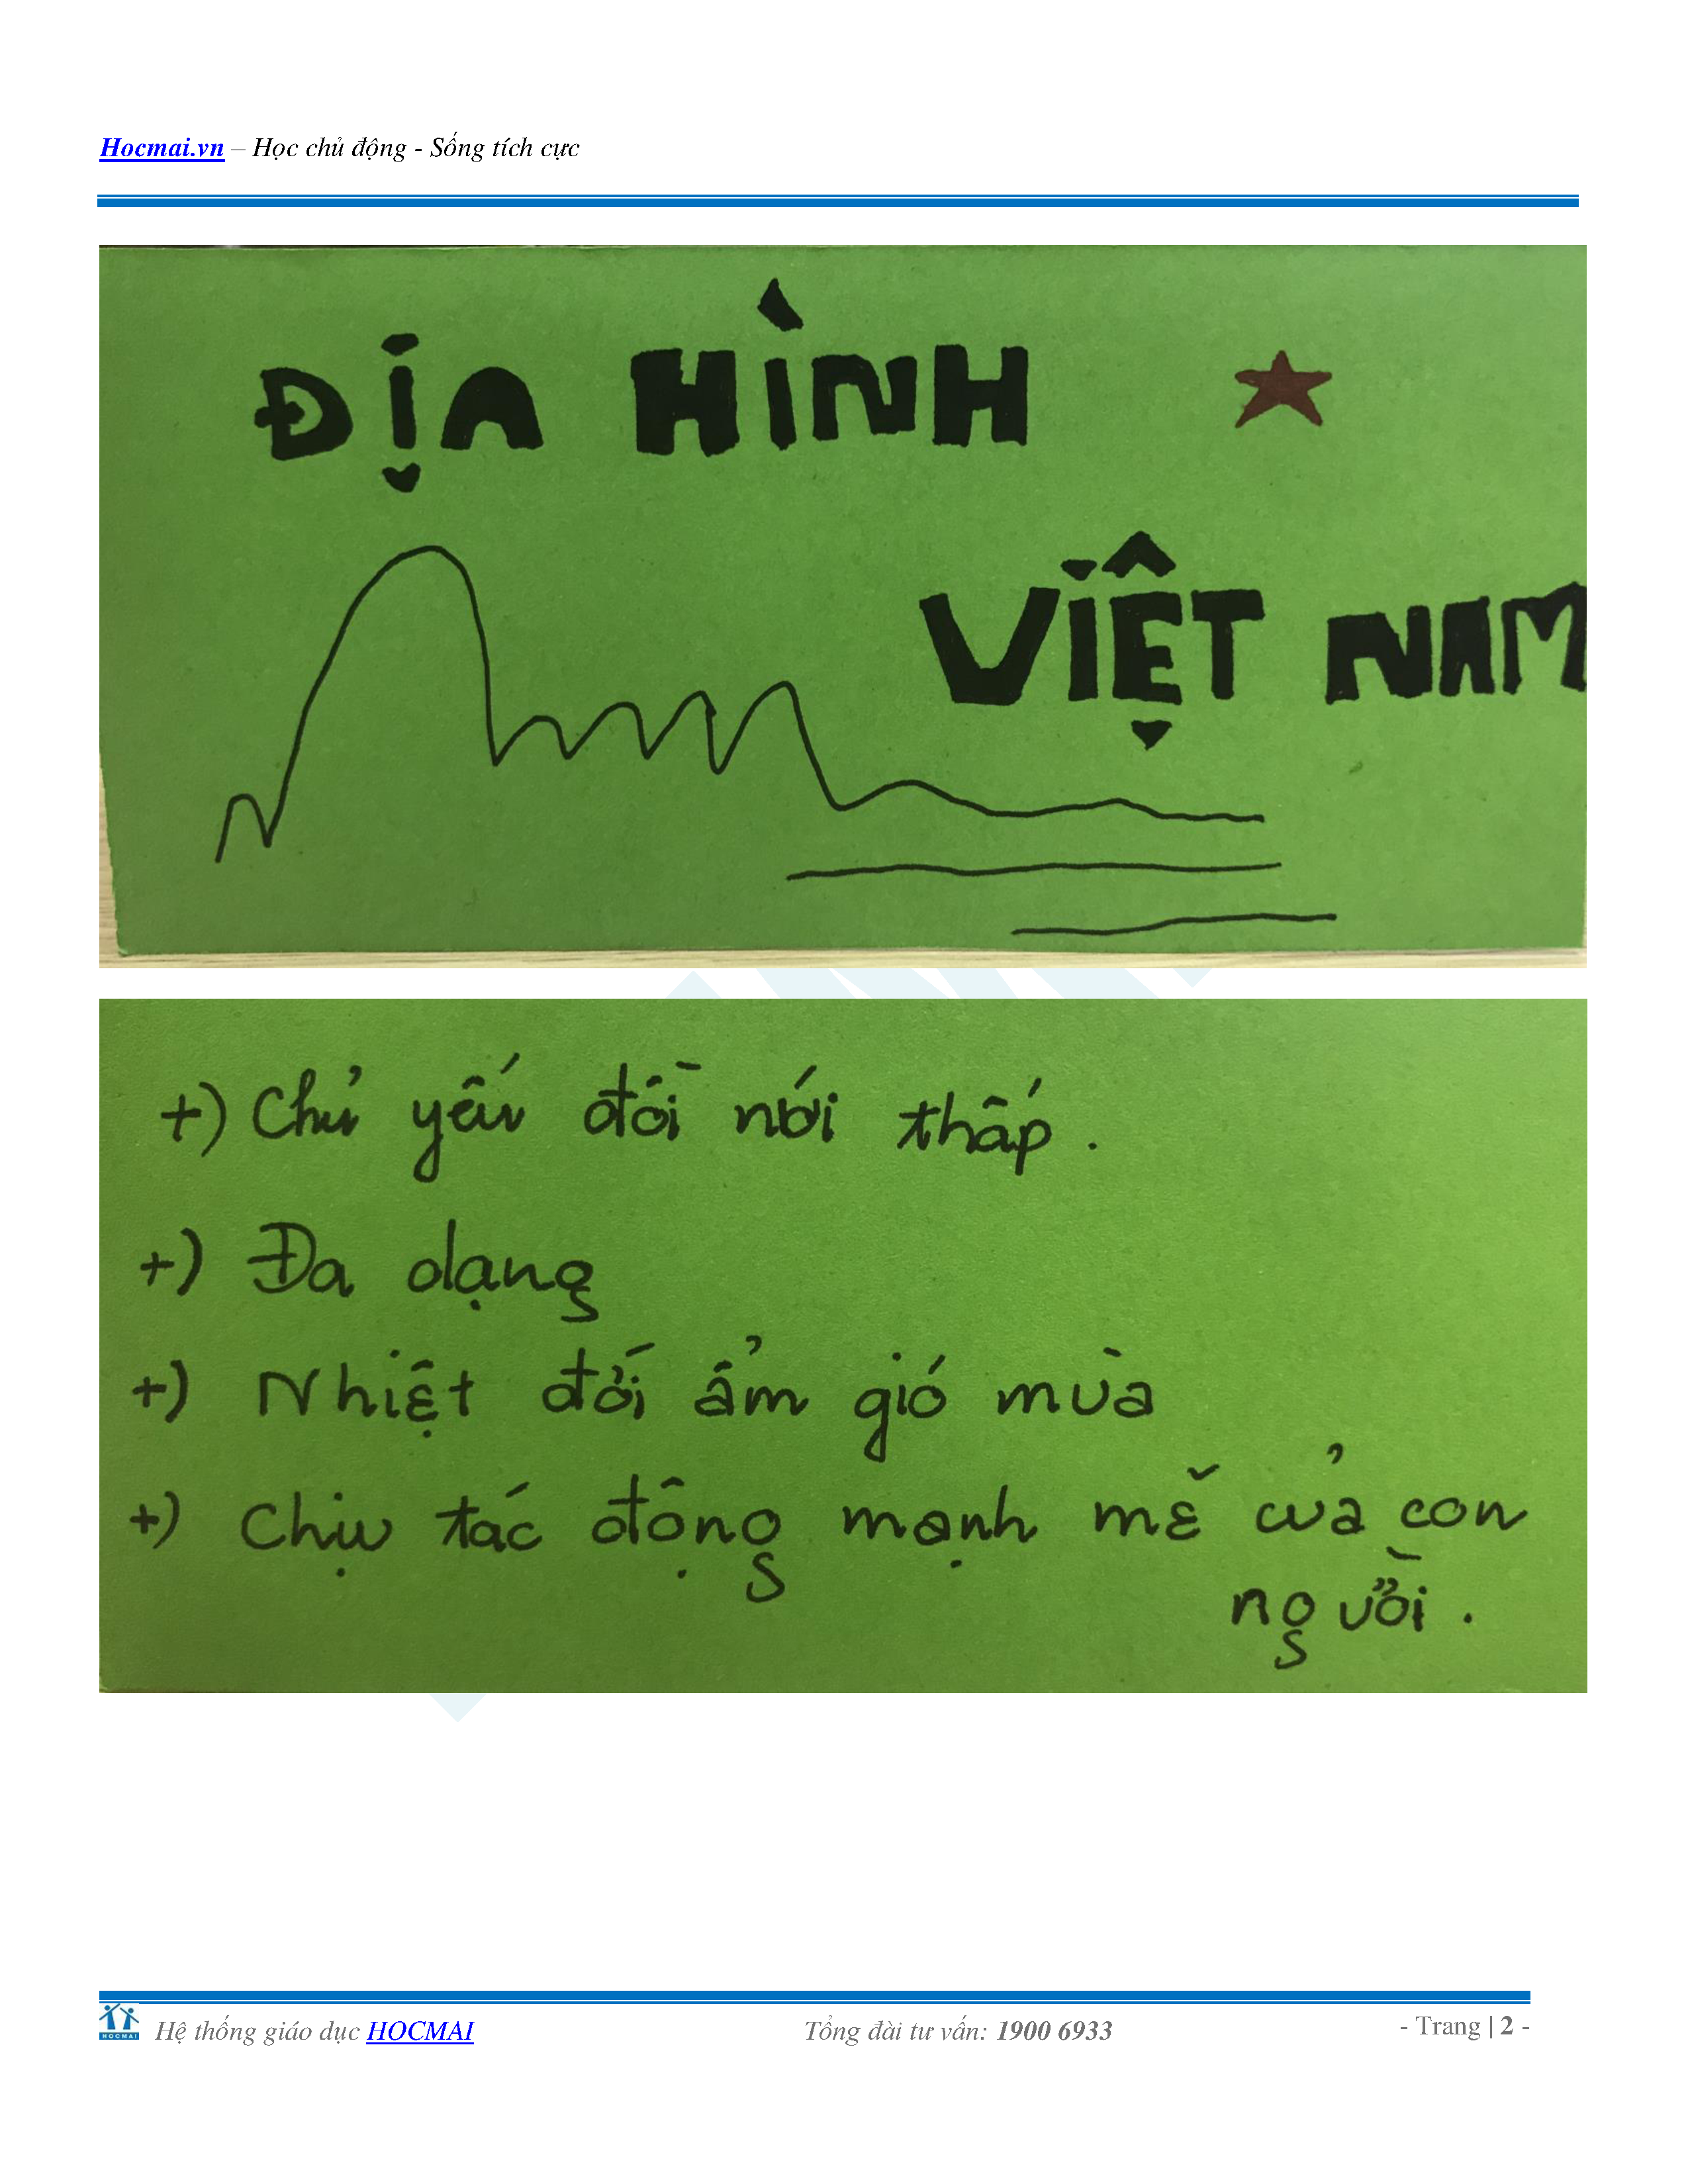 Hocmai.vn – Học chủ động - Sống tích cực
ĐỊA HÌNH
VIỆT NAM
+) Chủ yếu đồi núi thấp.
+) Đa dạng
+) Nhiệt đới ẩm gió mùa
+) Chịu tác động mạnh mẽ của con
người.
HOCMAI
Hệ thống giáo dục HOCMAI
Tổng đài tư vấn: 1900 6933
- Trang | 2 -